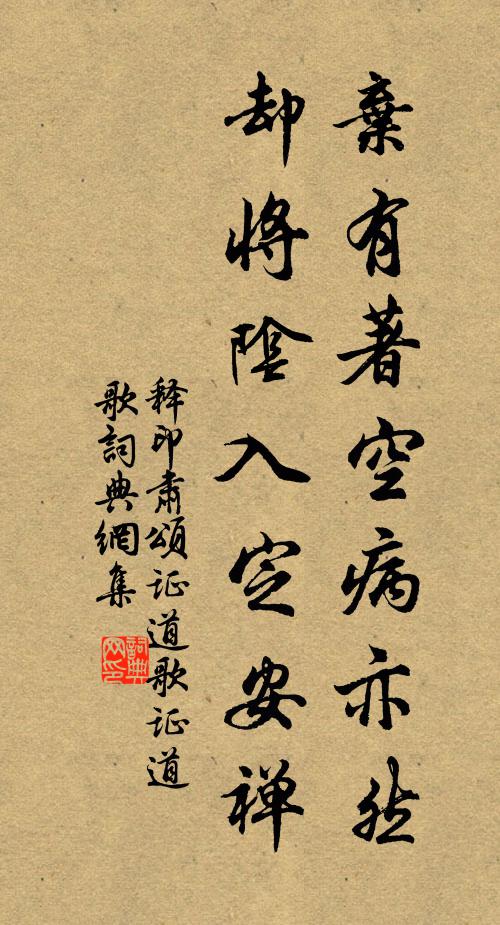 棄有著空病亦然
却將陰入定安禅
释印肅頌证道歌证道
歌詞典網集
詞典
网印